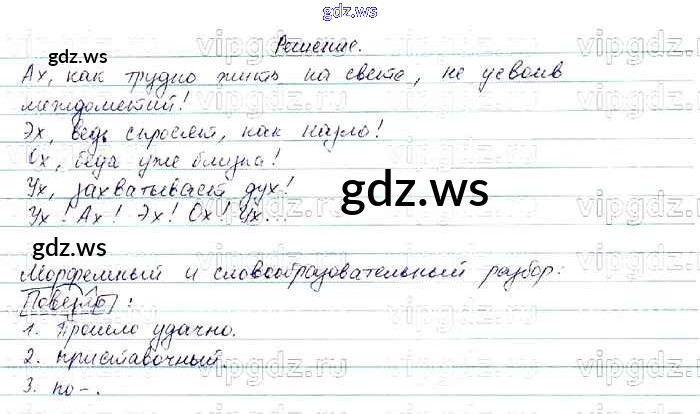 gdz.ws
Решение.
gdz.ws
Ах, как трудно жить на свете, не усвоив
междометий!
Эх, ведь спросят, как назло!
Ох, беда уже близка!
Ух, захватывает дух!
gdz.ws
Ух! Ах! Эх! Ох! Ух.
gdz.ws
Морфемный и словообразовательный разбор:
Повезло:
1. Прошло удачно.
2. приставочный.
3. по-.
vipgdz.ru
vipgdz.ru
vipgdz.ru